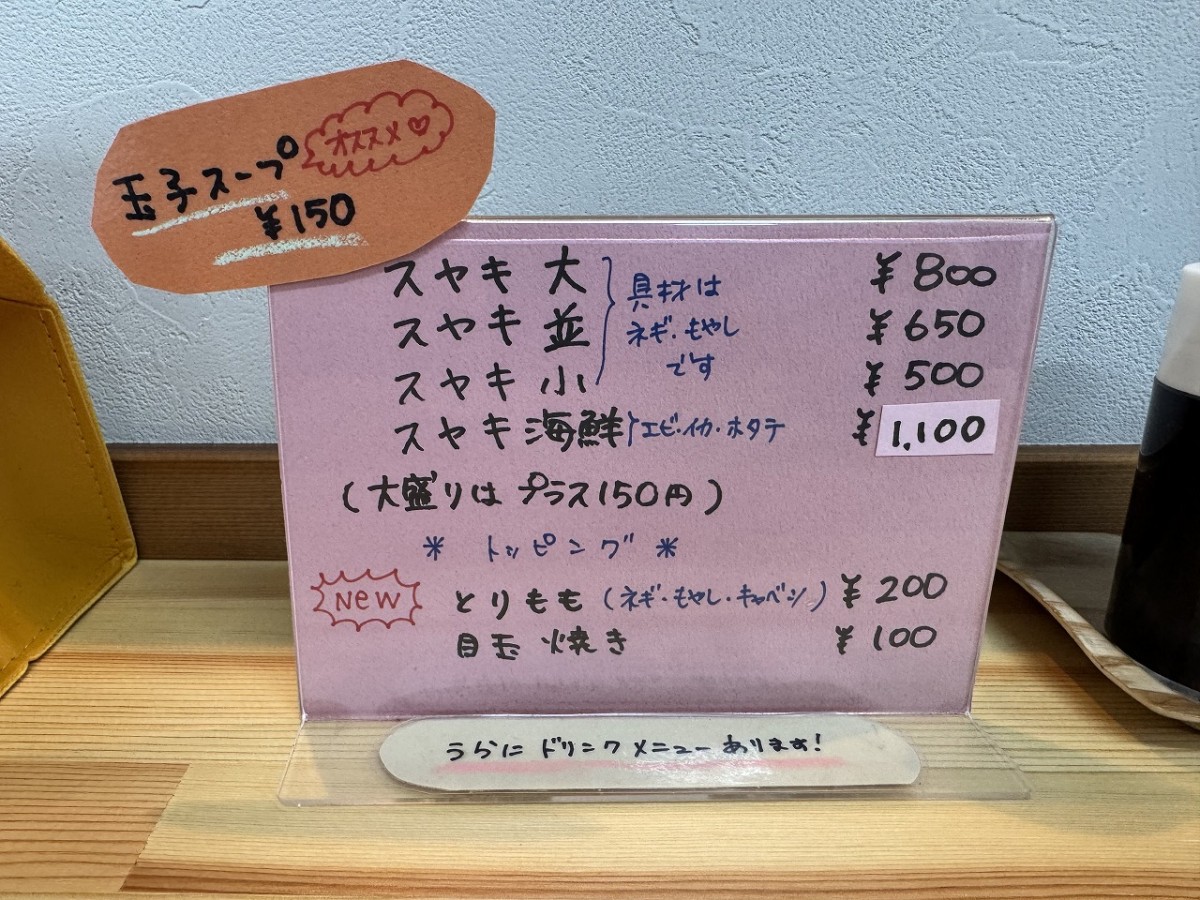 オススメ♡
玉子スープ
¥150
スヤキ 大 ¥800
スヤキ 並 ¥650
スヤキ 小 ¥500
具材は
ネギ・もやし
です
スヤキ 海鮮 エビ・イカ・ホタテ ¥1,100
(大盛りは プラス150円)
* トッピング *
NEW とりもも (ネギ・もやし・キャベツ) ¥200
目玉焼き ¥100
うらに ドリンクメニューあります!